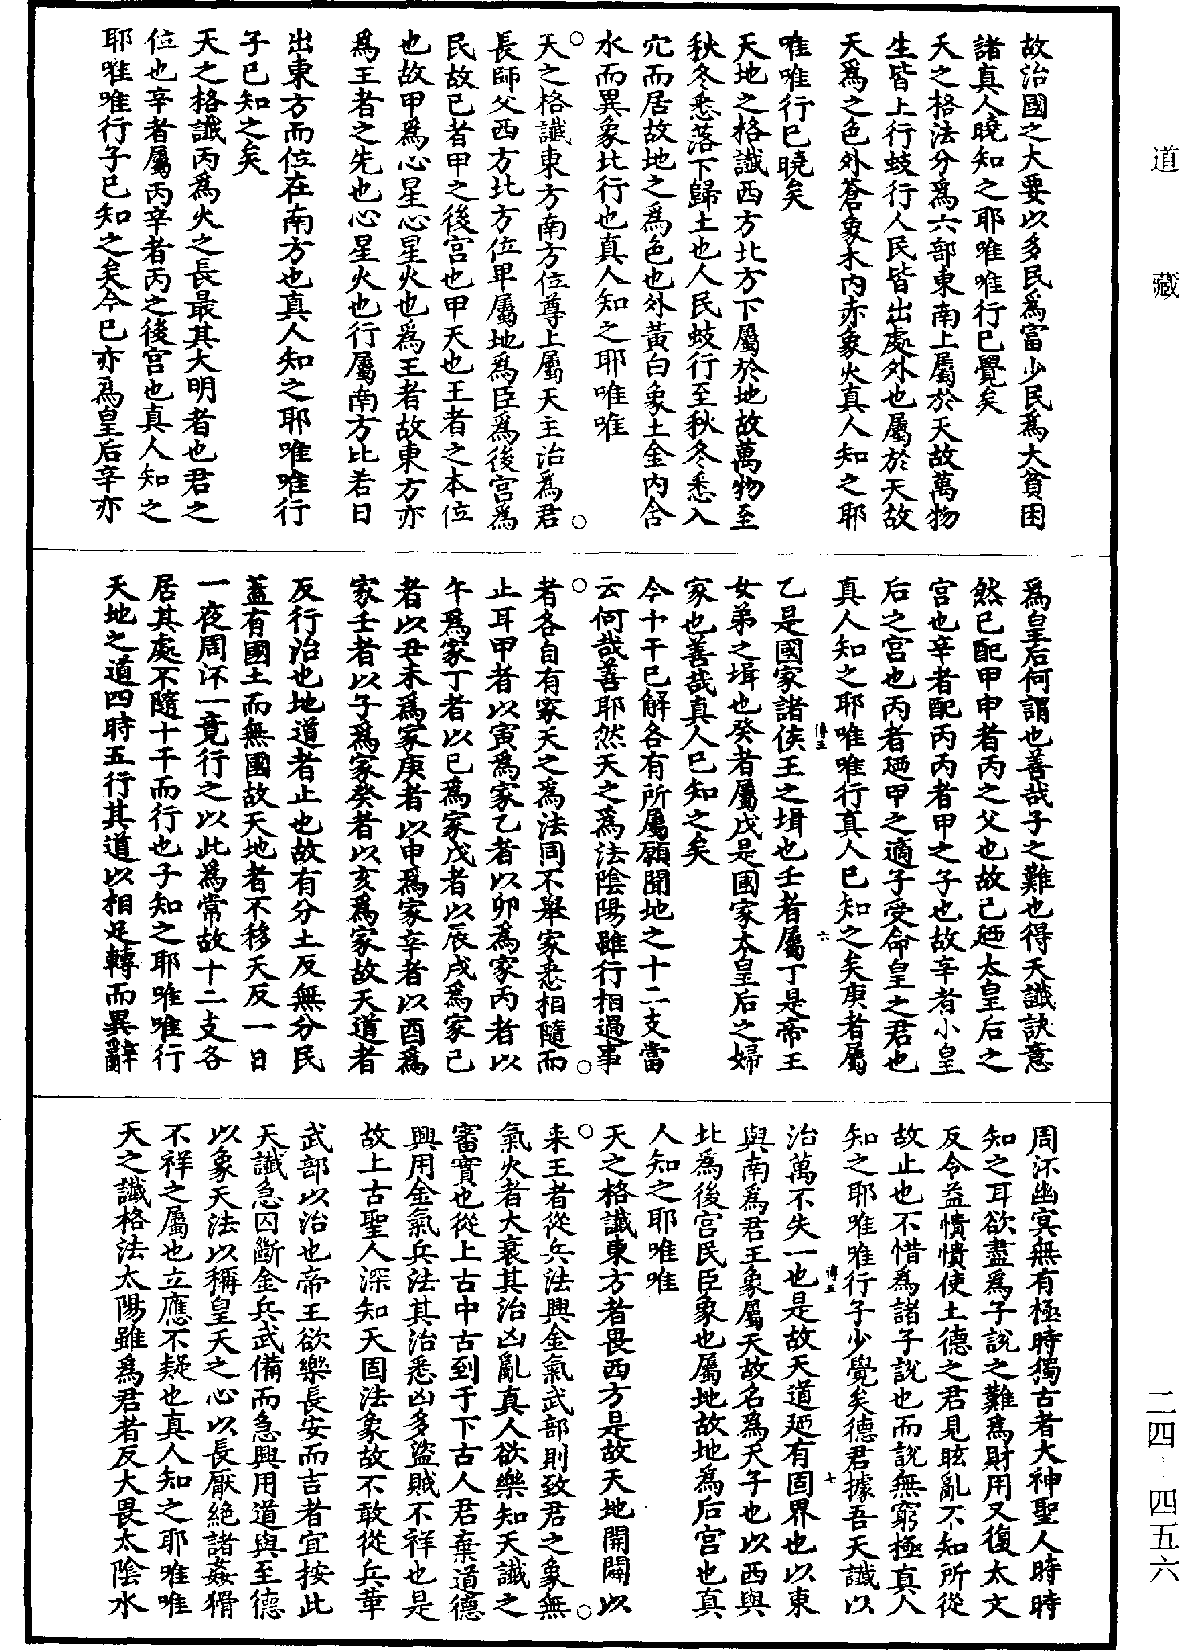 道藏
二四·四五六
故治國之大要以多民為富少民為大貧困
諸真人曉知之耶唯唯行已覺矣
天之格法分為六部東南上屬於天故萬物
生皆上行蚑行人民皆出處外也屬於天故
天為之色外蒼象木內亦象火真人知之耶
唯唯行已曉矣
天地之格讖西方北方下屬於地故萬物至
秋冬悉落下歸土也人民蚑行至秋冬悉入
穴而居故地之為色也外黃白象土金內含
水而異象比行也真人知之耶唯唯
天之格讖東方南方位尊上屬天主治為君
長師父西方北方位卑屬地為臣為後宮為
民故己者甲之後宮也甲天也王者之本位
也故甲為心星心星火也為王者故東方亦
為王者之先也心星火也行屬南方比若日
出東方而位在南方也真人知之耶唯唯行
子已知之矣
天之格讖丙為火之長最其大明者也君之
位也辛者屬丙辛者丙之後宮也真人知之
耶唯唯行子已知之矣今已亦為皇后辛亦
為皇后何謂也善哉子之難也得天讖訣意
然己配甲甲者丙之父也故己廼太皇后之
宮也辛者配丙丙者甲之子也故辛者小皇
后之宮也丙者廼甲之適子受命皇之君也
真人知之耶唯唯行真人已知之矣庚者屬
乙是國家諸侯王之壻也壬者屬丁是帝王
女弟之壻也癸者屬戊是國家太皇后之婦
家也善哉真人已知之矣
今十干已解各有所屬願聞地之十二支當
云何哉善耶然天之為法陰陽雖行相過事
者各自有家天之為法同不舉家悉相隨而
止耳甲者以寅為家乙者以卯為家丙者以
午為家丁者以巳為家戊者以辰戌為家己
者以丑未為家庚者以申為家辛者以酉為
家壬者以子為家癸者以亥為家故天道者
反行治也地道者止也故有分土反無分民
蓋有國土而無國故天地者不移天反一日
一夜周㳅一竟行之以此為常故十二支各
居其處不隨十干而行也子知之耶唯唯行
天地之道四時五行其道以相足轉而異辭
周㳅幽冥無有極時獨古者大神聖人時時
知之耳欲盡為子說之難為財用又復太文
反令益憒憒使土德之君見眩亂不知所從
故止也不惜為諸子說也而說無窮極真人
知之耶唯唯行子少覺矣德君據吾天讖以
治萬不失一也是故天道廼有固界也以東
與南為君王象屬天故名為天子也以西與
北為後宮民臣象也屬地故地為后宮也真
人知之耶唯唯
天之格讖東方者畏西方是故天地開闢以
来王者從兵法興金氣武部則致君之象無
氣火者大衰其治凶亂真人欲樂知天讖之
審實也從上古中古到于下古人君棄道德
興用金氣兵法其治悉凶多盜賊不祥也是
故上古聖人深知天固法象故不敢從兵革
武部以治也帝王欲樂長安而吉者宜按此
天讖急囚斷金兵武備而急興用道與至德
以象天法以稱皇天之心以長厭絕諸姦猾
不祥之屬也立應不疑也真人知之耶唯唯
天之讖格法太陽雖為君者反大畏太陰水